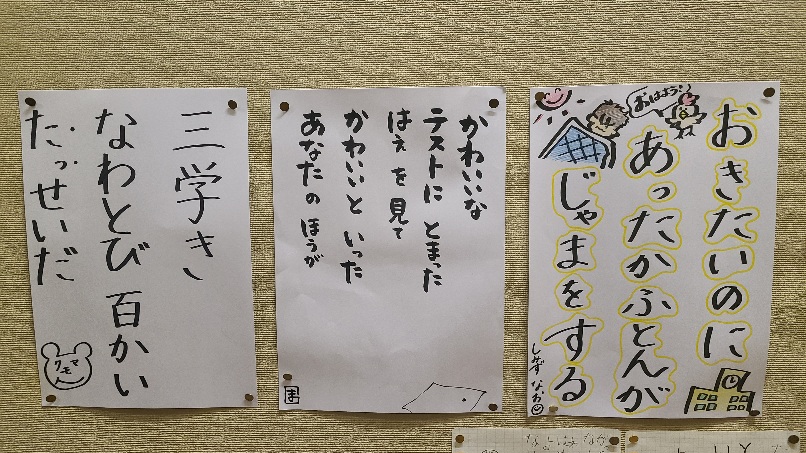 おきたいのに
あったかふとんが
じゃまをする
おはよう!
しみず なお
かわいいな
テストに とまった
はえ を 見て
かわいいと いった
あなた の ほうが
三学き
なわとび 百かい
たっせいだ
クモマ